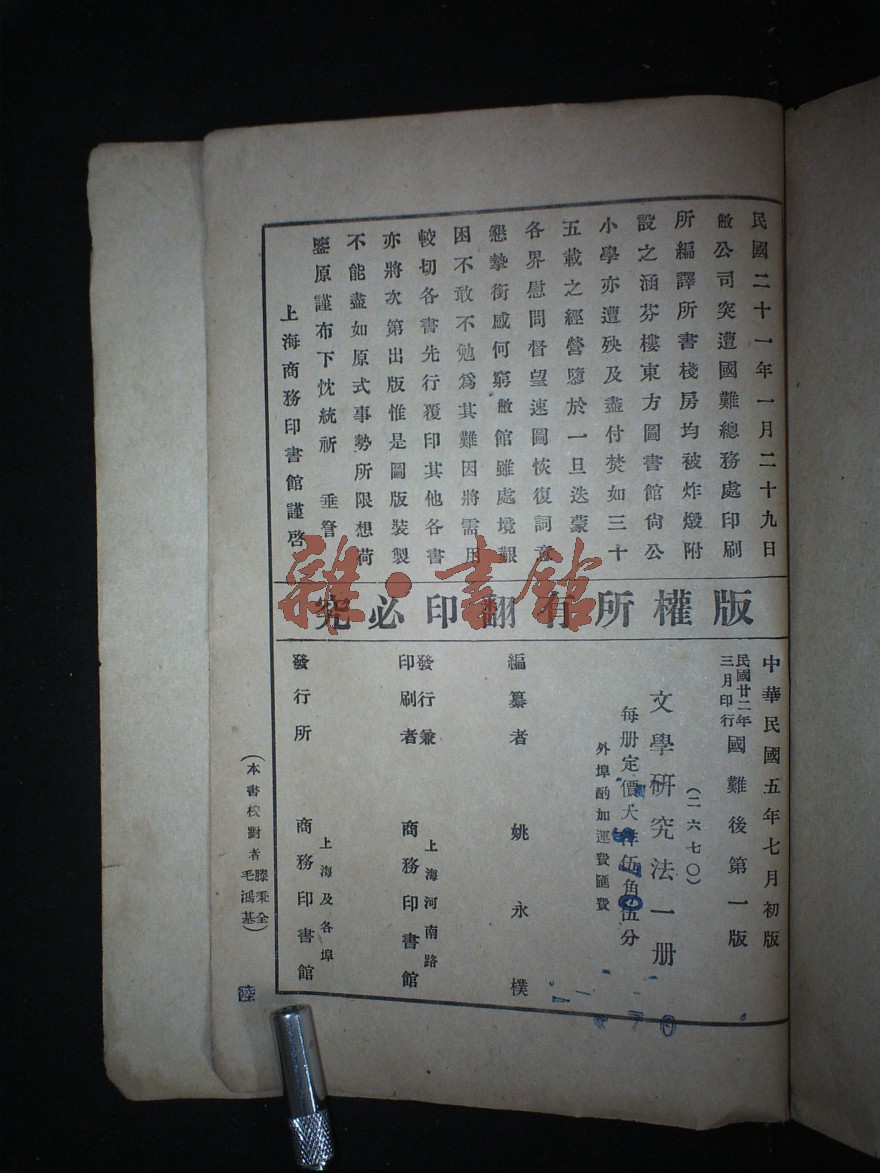 民國二十一年一月二十九日
敝公司突遭國難總務處印刷
所編譯所書棧房均被炸燬附
設之涵芬樓東方圖書館尙公
小學亦遭殃及盡付焚如三十
五載之經營隳於一旦迭蒙
各界慰問督望速圖恢復詞意
懇摯銜感何窮敝館雖處境艱
困不敢不勉爲其難因將需用
較切各書先行覆印其他各書
亦將次第出版惟是圖版裝製
不能盡如原式事勢所限想荷
鑒原謹布下忱統祈 垂詧
上海商務印書館謹啓
版權所有翻印必究
中華民國五年七月初版
民國廿二年三月印行 國難後第一版
(二六七〇)
文學研究法一册
每册定價大洋伍角伍分
外埠酌加運費匯費
編纂者 姚永樸
發行兼印刷者 上海河南路 商務印書館
發行所 上海及各埠 商務印書館
(本書校對者 滕秉全 毛鴻基)
雜·書館